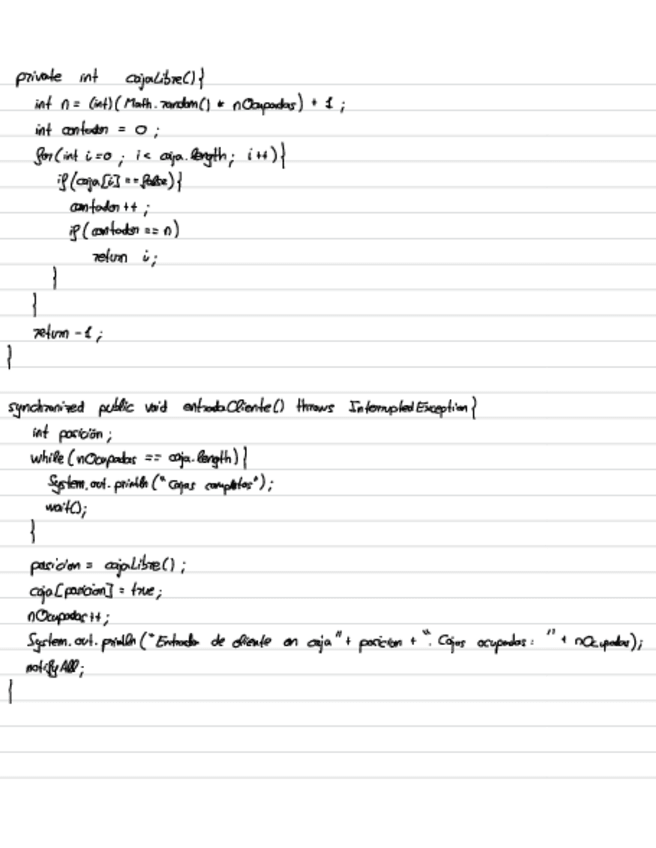 private int cajaLibre(){
int n = (int)(Math.random() * nOcupadas) + 1;
int contador = 0;
for(int i=0; i< caja.length; i++){
if(caja[i] == false){
contador++;
if(contador == n)
return i;
}
}
return -1;
}
synchronized public void entradaCliente() throws InterruptedException{
int posición;
while(nOcupadas == caja.length){
System.out.println("Cajas completas");
wait();
}
posicion = cajaLibre();
caja[posicion] = true;
nOcupadas++;
System.out.println("Entrada de cliente en caja" + posicion + ". Cajas ocupadas: " + nOcupadas);
notifyAll;
}